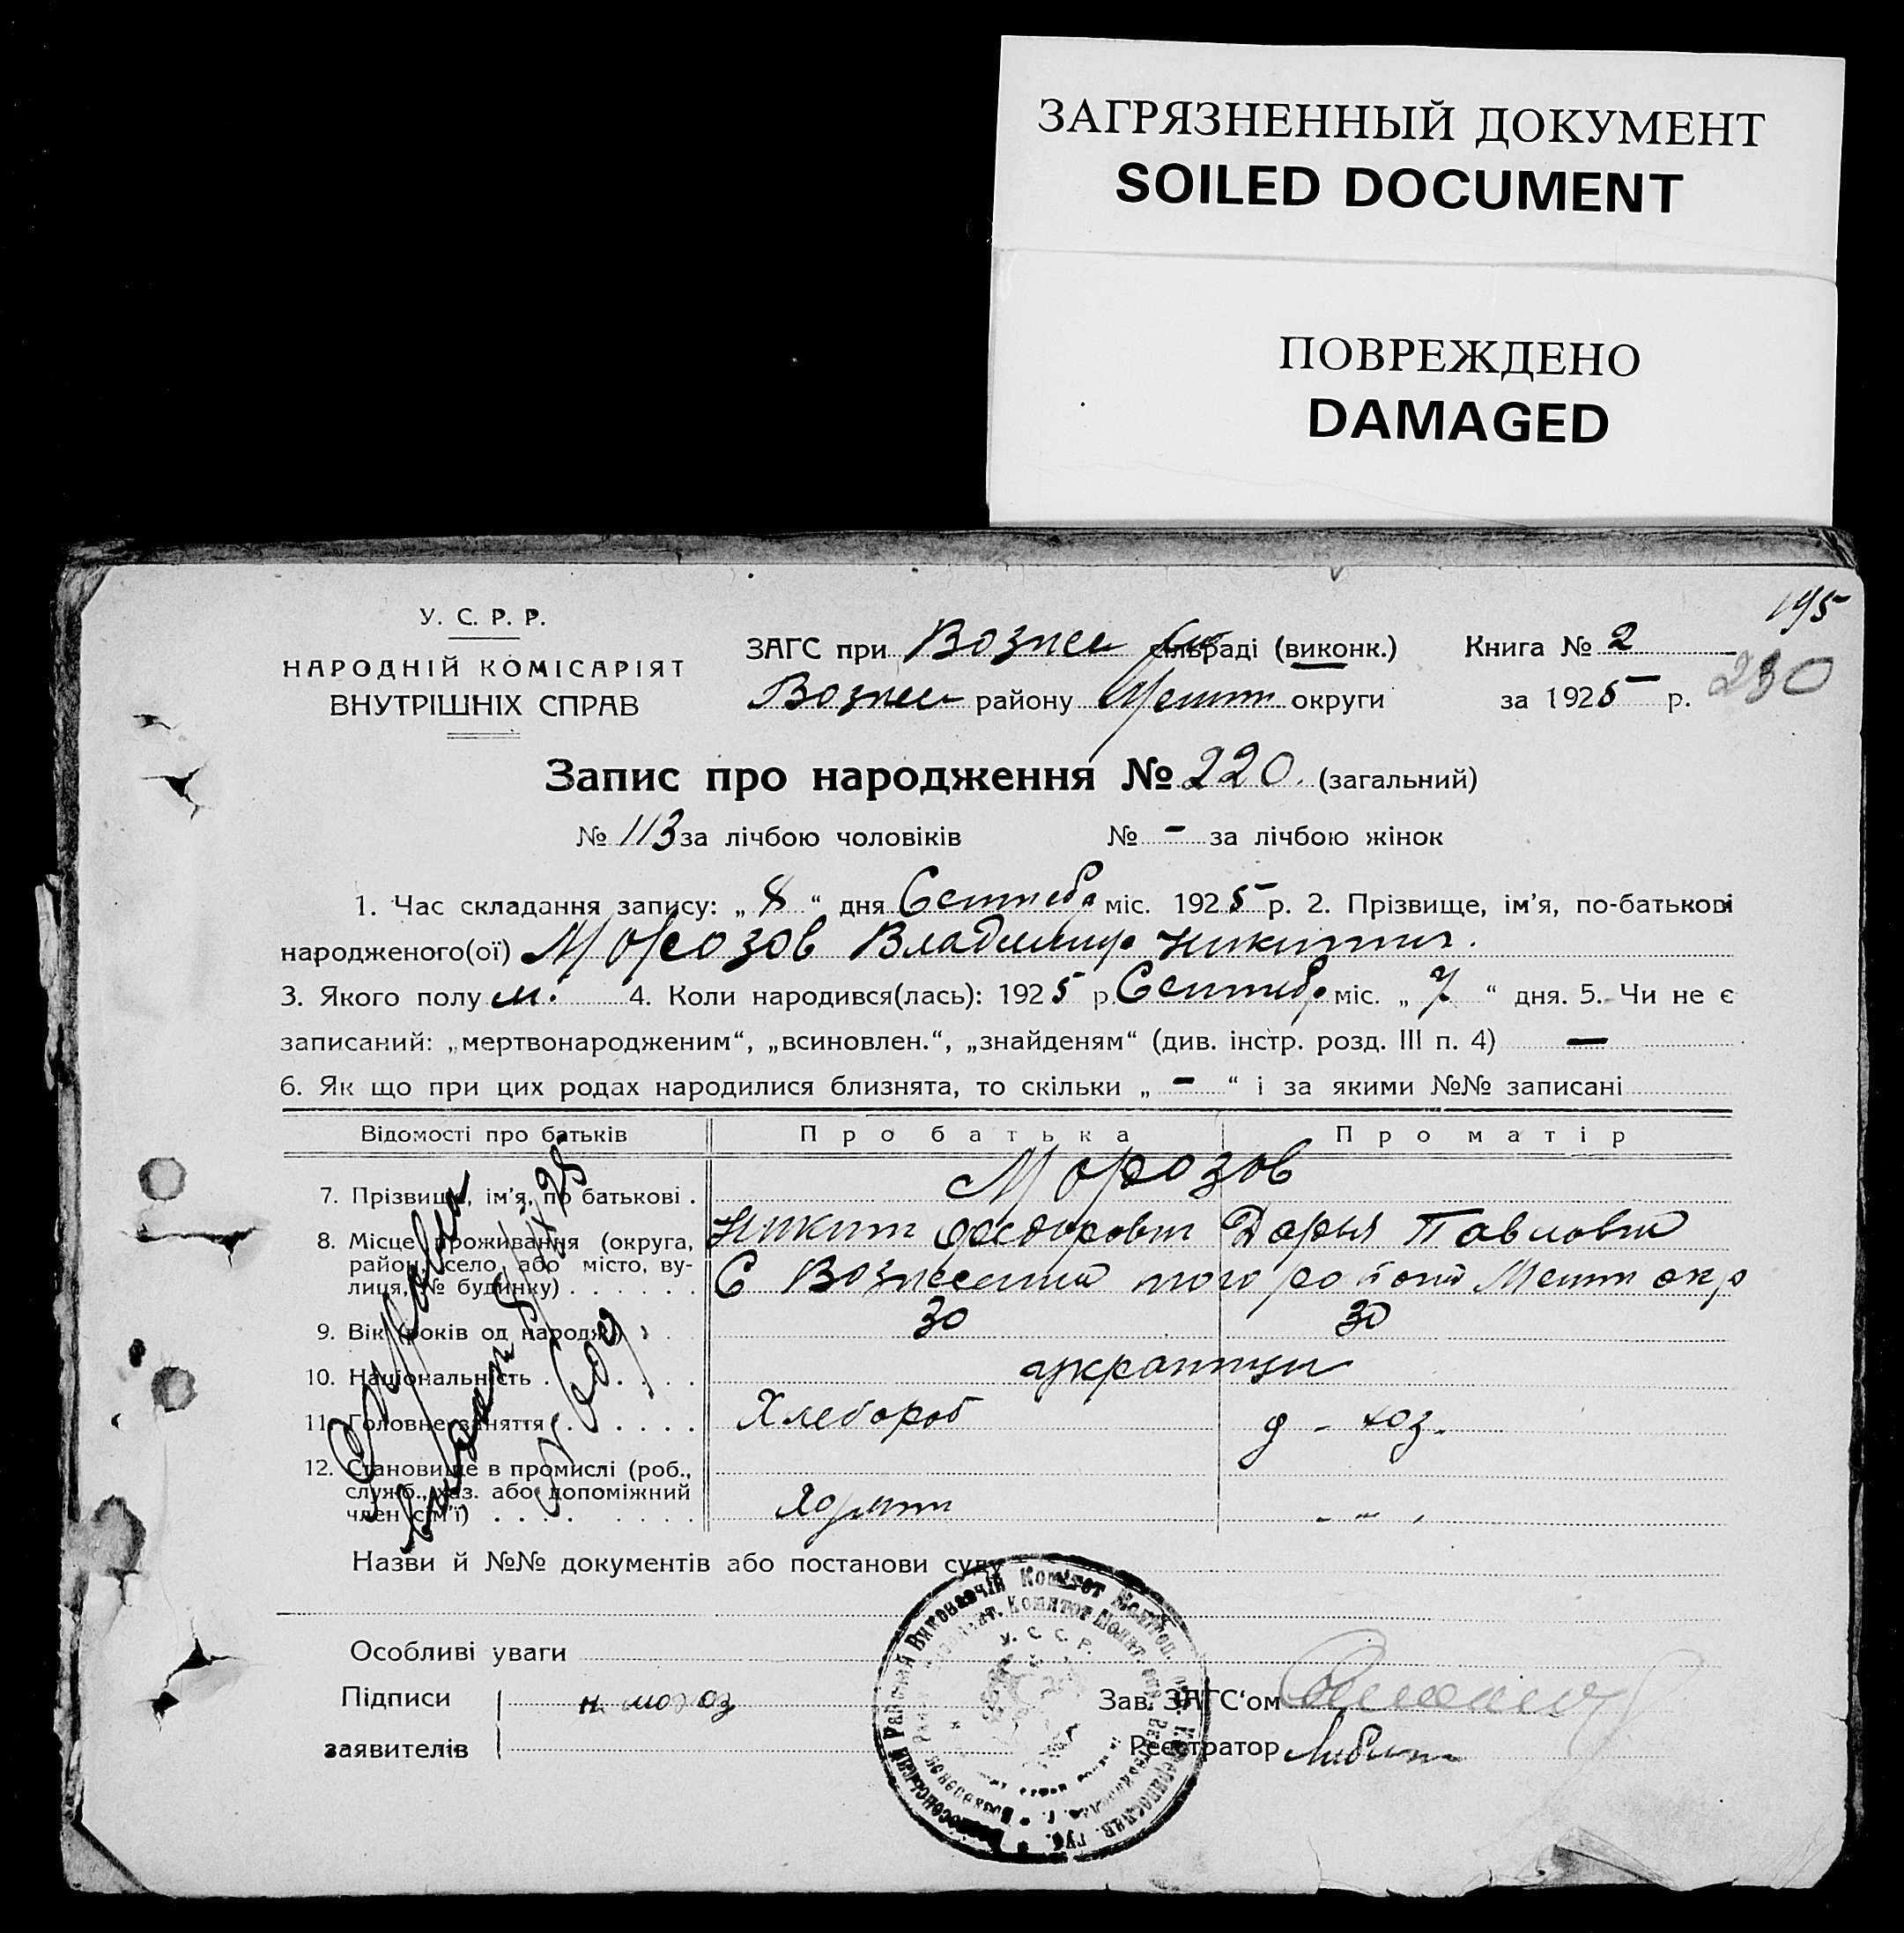 ЗАГРЯЗНЕННЫЙ ДОКУМЕНТ
SOILED DOCUMENT
ПОВРЕЖДЕНО
DAMAGED
195
230
У. С. Р. Р.
НАРОДНІЙ КОМІСАРІЯТ
ВНУТРІШНІХ СПРАВ
ЗАГС при Вознес сільраді (виконк.) Книга № 2
Вознес району Мелит округи за 1925 р.
Запис про народження № 220. (загальний)
№ 113 за лічбою чоловіків № - за лічбою жінок
1. Час складання запису: „ 8 “ дня Сентебр міс. 1925 р. 2. Прізвище, ім’я, по-батькові
народженого(ої) Морозов Владимир Никитич.
3. Якого полу м. 4. Коли народився(лась): 1925 р. Сентебр міс. „ 7 “ дня. 5. Чи не є
записаний: „мертвонародженим“, „всиновлен.“, „знайденям“ (див. інстр. розд. III п. 4) —
6. Як що при цих родах народилися близнята, то скільки „ - “ і за якими №№ записані
Відомості про батьків Про батька Про матір
7. Прізвище, ім’я, по батькові . Морозов
Никит Федорович Дарья Павловн
8. Місце проживання (округа,
район, село, або місто, ву-
лиця, № будинку) . . . . . . С Вознесенка того району Мелит окр
9. Вік (років од народж.) : . . 30 30
10. Національність . . . . . . украинцы
11. Головне заняття . . . . . . Хлебороб д - хоз.
12. Становище в промислі (роб.,
служб., хаз. або допоміжний
член сім’ї) . . . . . . . . . - " -
Справка
выдан
Назви й №№ документів або постанови суду
Особливі уваги
Підписи н мороз Зав. ЗАГС‘ом
заявителів Реєстратор
Вознесенський Районний Виконавчій Комітет Мелітоп. окр. Катеринослав. губ.
У. С. С. Р.